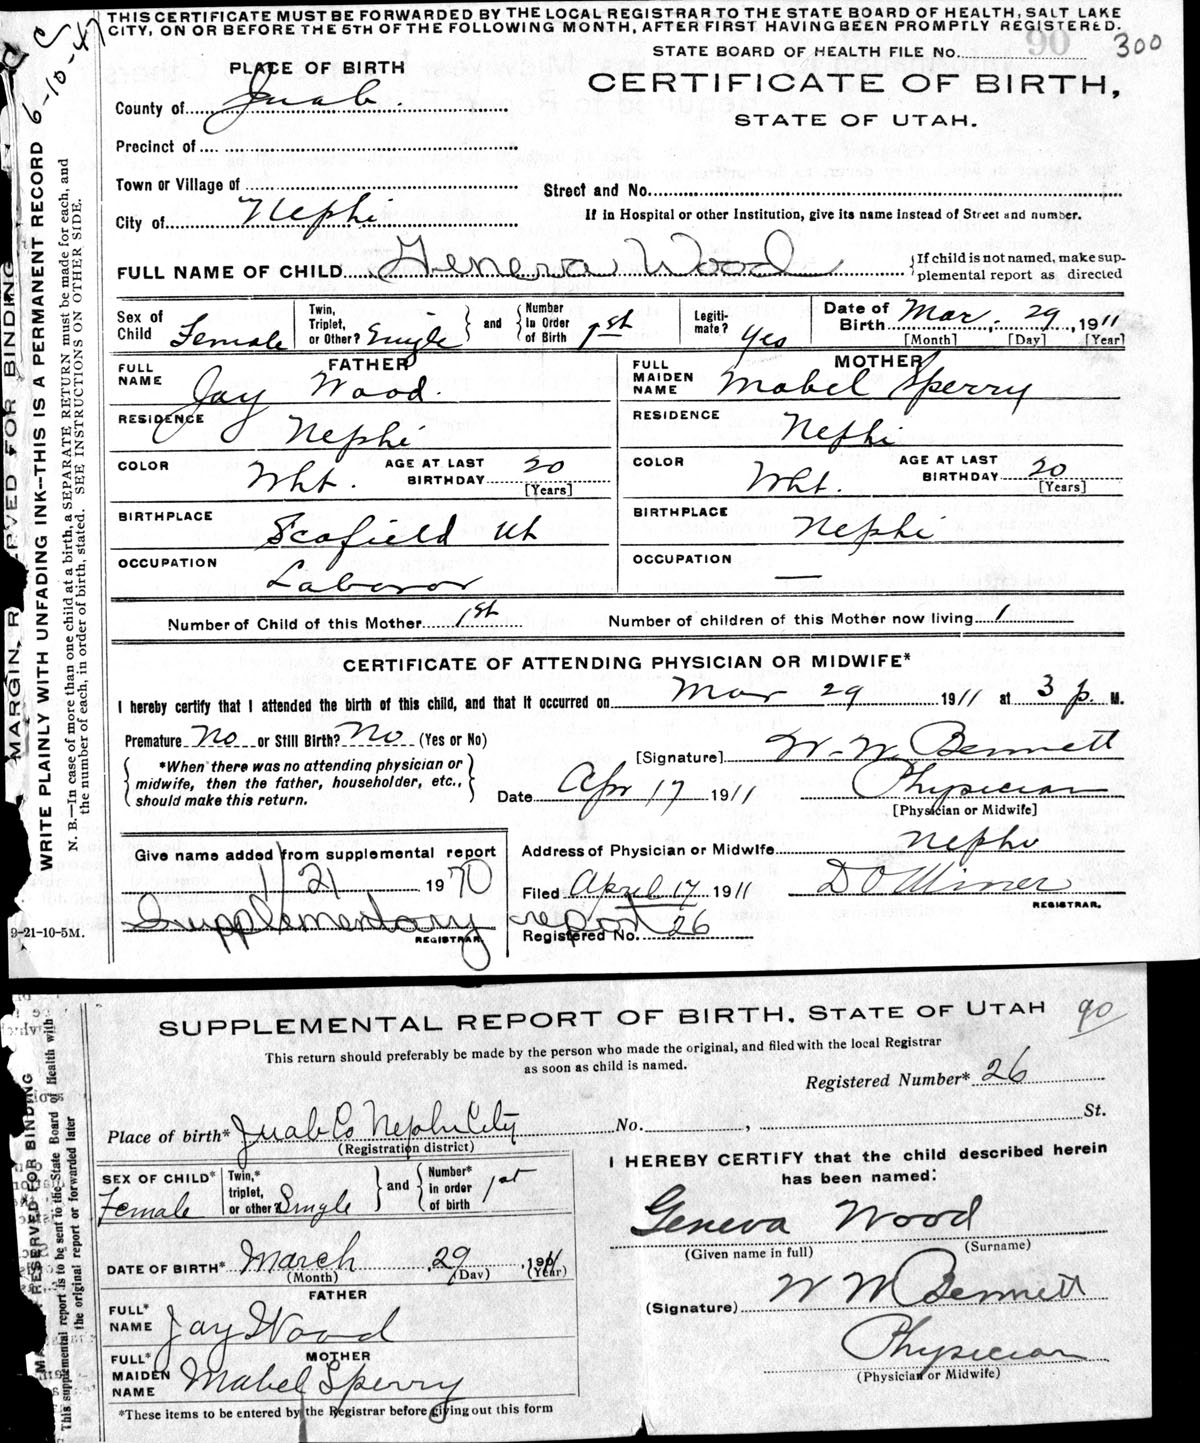 THIS CERTIFICATE MUST BE FORWARDED BY THE LOCAL REGISTRAR TO THE STATE BOARD OF HEALTH, SALT LAKE
CITY, ON OR BEFORE THE 5TH OF THE FOLLOWING MONTH, AFTER FIRST HAVING BEEN PROMPTLY REGISTERED.
90 300
STATE BOARD OF HEALTH FILE No.
PLACE OF BIRTH
CERTIFICATE OF BIRTH,
STATE OF UTAH.
County of Juab.
Precinct of
Town or Village of
Street and No.
City of Nephi
If in Hospital or other Institution, give its name instead of Street and number.
FULL NAME OF CHILD Geneva Wood
If child is not named, make sup-
plemental report as directed
Sex of Child Female
Twin, Triplet, or Other? Single
and Number In Order of Birth 1st
Legiti-mate? Yes
Date of Birth Mar. 29, 1911
[Month] [Day] [Year]
FATHER
FULL NAME Jay Wood.
MOTHER
FULL MAIDEN NAME Mabel Sperry
RESIDENCE Nephi
RESIDENCE Nephi
COLOR Wht. AGE AT LAST BIRTHDAY 20 [Years]
COLOR Wht. AGE AT LAST BIRTHDAY 20 [Years]
BIRTHPLACE Scofield Ut
BIRTHPLACE Nephi
OCCUPATION Laboror
OCCUPATION —
Number of Child of this Mother 1st
Number of children of this Mother now living 1
CERTIFICATE OF ATTENDING PHYSICIAN OR MIDWIFE*
I hereby certify that I attended the birth of this child, and that it occurred on Mar 29 1911 at 3 p. M.
Premature No or Still Birth? No (Yes or No)
[Signature] W. W. Bennett
*When there was no attending physician or
midwife, then the father, householder, etc.,
should make this return.
Date Apr 17 1911
Physician
[Physician or Midwife]
Give name added from supplemental report
1/21 1970
Supplementary report
REGISTRAR.
Address of Physician or Midwife Nephi
Filed April 17 1911
D O Miner
REGISTRAR.
Registered No. 26
9-21-10-5M.
MARGIN RESERVED FOR BINDING
WRITE PLAINLY WITH UNFADING INK--THIS IS A PERMANENT RECORD 6-10-
N. B.—In case of more than one child at a birth, a SEPARATE RETURN must be made for each, and
the number of each, in order of birth, stated. SEE INSTRUCTIONS ON OTHER SIDE.
SUPPLEMENTAL REPORT OF BIRTH, STATE OF UTAH 90
This return should preferably be made by the person who made the original, and filed with the local Registrar
as soon as child is named.
Registered Number* 26
Place of birth* Juab Co Nephi City
(Registration district)
No. , St.
SEX OF CHILD* Female
Twin,* triplet, or other? Single
and Number* in order of birth 1st
I HEREBY CERTIFY that the child described herein
has been named:
Geneva Wood
(Given name in full) (Surname)
DATE OF BIRTH* March 29, 1911
(Month) (Day) (Year)
(Signature) W W Bennett
FATHER
FULL* NAME Jay Wood
Physician
(Physician or Midwife)
MOTHER
FULL* MAIDEN NAME Mabel Sperry
*These items to be entered by the Registrar before giving out this form
RESERVED FOR BINDING
This supplemental report is to be sent to the State Board of Health with
the original report or forwarded later